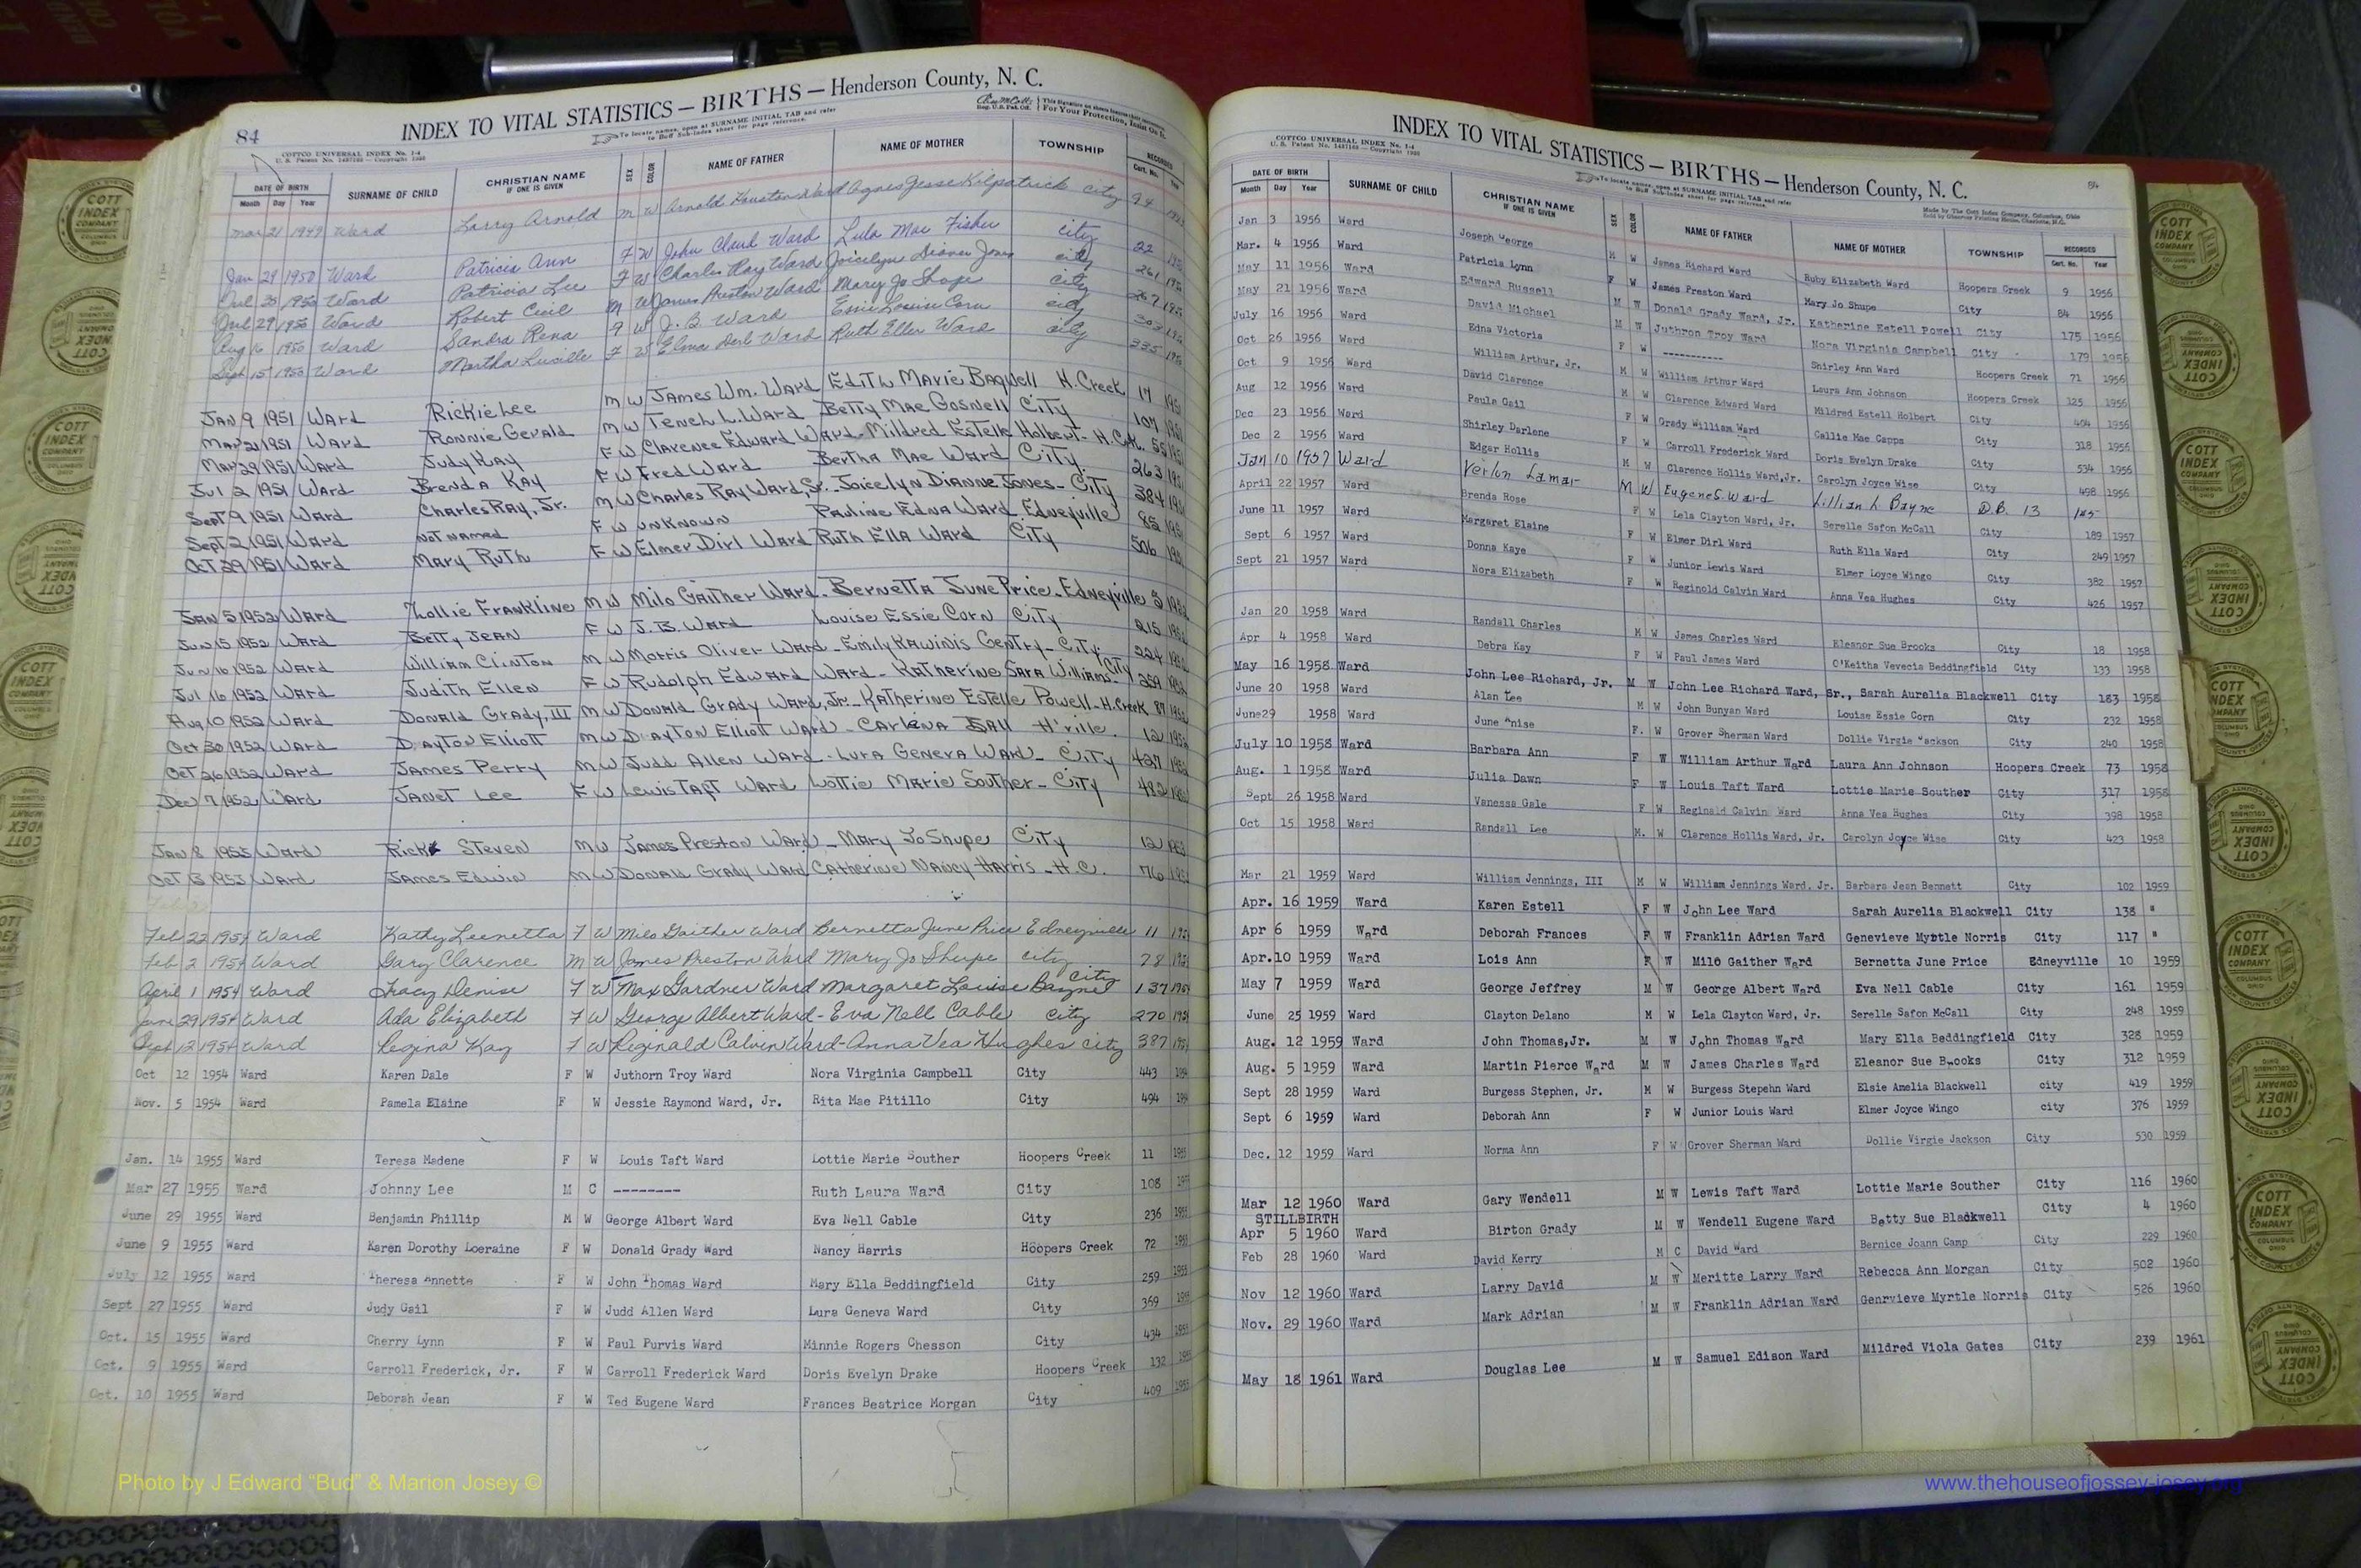 84
INDEX TO VITAL STATISTICS — BIRTHS — Henderson County, N. C.
To locate names, open at SURNAME INITIAL TAB and refer
to Buff Sub-Index sheet for page reference.
COTTCO UNIVERSAL INDEX No. I-4
DATE OF BIRTH SURNAME OF CHILD CHRISTIAN NAME IF ONE IS GIVEN SEX COLOR NAME OF FATHER NAME OF MOTHER TOWNSHIP RECORDED
Month Day Year Cert. No.
Mar 21 1949 Ward Larry Arnold M W Arnold Houston Ward Agnes Jesse Kilpatrick city 94
Jan 29 1950 Ward Patricia Ann F W John Claud Ward Lula Mae Fisher city 22
Jul 20 1950 Ward Patricia Lee F W Charles Ray Ward Joicelyn Dianne Jones city 261
Jul 29 1950 Ward Robert Cecil M W James Preston Ward Mary Jo Shope city 267
Aug 16 1950 Ward Sandra Rena F W J. B. Ward Essie Louise Corn city 303
Sept 15 1950 Ward Martha Lucille F W Elma Derl Ward Ruth Ellen Ward city 335
Jan 9 1951 Ward Rickie Lee M W James Wm. Ward Edith Marie Bagwell H. Creek 17
Mar 21 1951 Ward Ronnie Gerald M W Tench L. Ward Betty Mae Gosnell City 107
Mar 29 1951 Ward Judy Kay F W Clarence Edward Ward - Mildred Estelle Holbert - H. Crk. 55
Jul 2 1951 Ward Brenda Kay F W Fred Ward Bertha Mae Ward City 263
Sept 9 1951 Ward Charles Ray, Jr. M W Charles Ray Ward, Sr. - Joicelyn Dianne Jones - City 384
Sept 2 1951 Ward Not Named F W Unknown Pauline Edna Ward Edneyville 85
Oct 29 1951 Ward Mary Ruth F W Elmer Dirl Ward Ruth Ella Ward City 506
Jan 5 1952 Ward Zollie Frankline M W Milo Gaither Ward - Bernetta June Price - Edneyville 3
Jun 15 1952 Ward Betty Jean F W J. B. Ward Louise Essie Corn City 215
Jun 16 1952 Ward William Clinton M W Morris Oliver Ward - Emily Gentry - City 224
Jul 16 1952 Ward Judith Ellen F W Rudolph Edward Ward - Katherine Sara Williams City 259
Aug 10 1952 Ward Donald Grady, III M W Donald Grady Ward, Jr. - Katherine Estelle Powell - H. Creek 87
Oct 30 1952 Ward Drayton Elliott M W Drayton Elliott Ward - H'ville. 12
Oct 26 1952 Ward James Perry M W Judd Allen Ward - Lura Geneva Ward - City 427
Dec 7 1952 Ward Janet Lee F W Lewis Taft Ward Lottie Marie Souther - City 482
Jan 8 1953 Ward Steven M W James Preston Ward - Mary Jo Shupe City 12
Oct 1953 Ward James Edwin M W Donald Grady Ward Catherine Nancy Harris - H.C. 76
Feb 22 1954 Ward Kathy Leenetta F W Milo Gaither Ward Bernetta June Price Edneyville 11
Feb 2 1954 Ward Gary Clarence M W James Preston Ward Mary Jo Sherpe city 28
April 1 1954 Ward Tracy Denise F W Max Gardner Ward Margaret Louise city 137
June 29 1954 Ward Ada Elizabeth F W George Albert Ward - Eva Nell Cable city 270
Sept 12 1954 Ward Regina Kay F W Reginald Calvin Ward - Anna Vea Hughes city 387
Oct 12 1954 Ward Karen Dale F W Juthorn Troy Ward Nora Virginia Campbell City 443
Nov. 5 1954 Ward Pamela Elaine F W Jessie Raymond Ward, Jr. Rita Mae Pitillo City 494
Jan. 14 1955 Ward Teresa Madene F W Louis Taft Ward Lottie Marie Souther Hoopers Creek 11 1955
Mar 27 1955 Ward Johnny Lee M C -------- Ruth Laura Ward City 108 1955
June 29 1955 Ward Benjamin Phillip M W George Albert Ward Eva Nell Cable City 236 1955
June 9 1955 Ward Karen Dorothy Loeraine F W Donald Grady Ward Nancy Harris Hoopers Creek 72 1955
July 12 1955 Ward Theresa Annette F W John Thomas Ward Mary Ella Beddingfield City 259 1955
Sept 27 1955 Ward Judy Gail F W Judd Allen Ward Lura Geneva Ward City 369 1955
Oct. 15 1955 Ward Cherry Lynn F W Paul Purvis Ward Minnie Rogers Chesson City 434 1955
Oct. 9 1955 Ward Carroll Frederick, Jr. F W Carroll Frederick Ward Doris Evelyn Drake Hoopers Creek 132 1955
Oct. 10 1955 Ward Deborah Jean F W Ted Eugene Ward Frances Beatrice Morgan City 409 1955
Photo by J Edward “Bud” & Marion Josey ©
INDEX TO VITAL STATISTICS — BIRTHS — Henderson County, N. C.
84
COTTCO UNIVERSAL INDEX No. I-4
To locate names, open at SURNAME INITIAL TAB and refer
to Buff Sub-Index sheet for page reference.
DATE OF BIRTH SURNAME OF CHILD CHRISTIAN NAME IF ONE IS GIVEN SEX COLOR NAME OF FATHER NAME OF MOTHER TOWNSHIP RECORDED
Month Day Year Cert. No. Year
Jan 3 1956 Ward Joseph George M W James Richard Ward Ruby Elizabeth Ward Hoopers Creek 9 1956
Mar. 4 1956 Ward Patricia Lynn F W James Preston Ward Mary Jo Shupe City 84 1956
May 11 1956 Ward Edward Russell M W Donald Grady Ward, Jr. Katherine Estell Powell City 175 1956
May 21 1956 Ward David Michael M W Juthron Troy Ward Nora Virginia Campbell City 179 1956
July 16 1956 Ward Edna Victoria F W ----------- Shirley Ann Ward Hoopers Creek 71 1956
Oct 26 1956 Ward William Arthur, Jr. M W William Arthur Ward Laura Ann Johnson Hoopers Creek 125 1956
Oct 9 1956 Ward David Clarence M W Clarence Edward Ward Mildred Estell Holbert City 404 1956
Aug 12 1956 Ward Paula Gail F W Grady William Ward Callie Mae Capps City 318 1956
Dec 23 1956 Ward Shirley Darlene F W Carroll Frederick Ward Doris Evelyn Drake City 534 1956
Dec 2 1956 Ward Edgar Hollis M W Clarence Hollis Ward, Jr. Carolyn Joyce Wise City 498 1956
Jan 10 1957 Ward Verlon Lamar M W Eugene S. Ward Lillian L Bayne D.B. 13
April 22 1957 Ward Brenda Rose F W Lela Clayton Ward, Jr. Serelle Safon McCall City 189 1957
June 11 1957 Ward Margaret Elaine F W Elmer Dirl Ward Ruth Ella Ward City 249 1957
Sept 6 1957 Ward Donna Kaye F W Junior Lewis Ward Elmer Loyce Wingo City 382 1957
Sept 21 1957 Ward Nora Elizabeth F W Reginold Calvin Ward Anna Vea Hughes City 426 1957
Jan 20 1958 Ward Randall Charles M W James Charles Ward Eleanor Sue Brooks City 18 1958
Apr 4 1958 Ward Debra Kay F W Paul James Ward O'Keitha Vevecia Beddingfield City 133 1958
May 16 1958 Ward John Lee Richard, Jr. M W John Lee Richard Ward, Sr., Sarah Aurelia Blackwell City 183 1958
June 20 1958 Ward Alan Lee M W John Bunyan Ward Louise Essie Corn City 232 1958
June 29 1958 Ward June Anise F. W Grover Sherman Ward Dollie Virgie Jackson City 240 1958
July 10 1958 Ward Barbara Ann F W William Arthur Ward Laura Ann Johnson Hoopers Creek 73 1958
Aug. 1 1958 Ward Julia Dawn F W Louis Taft Ward Lottie Marie Souther City 317 1958
Sept 26 1958 Ward Vanessa Gale F W Reginald Calvin Ward Anna Vea Hughes City 398 1958
Oct 15 1958 Ward Randall Lee M. W Clarence Hollis Ward, Jr. Carolyn Joyce Wise City 423 1958
Mar 21 1959 Ward William Jennings, III M W William Jennings Ward, Jr. Barbara Jean Bennett City 102 1959
Apr. 16 1959 Ward Karen Estell F W John Lee Ward Sarah Aurelia Blackwell City 138 "
Apr 6 1959 Ward Deborah Frances F W Franklin Adrian Ward Genevieve Myrtle Norris City 117 "
Apr. 10 1959 Ward Lois Ann F W Milo Gaither Ward Bernetta June Price Edneyville 10 1959
May 7 1959 Ward George Jeffrey M W George Albert Ward Eva Nell Cable City 161 1959
June 25 1959 Ward Clayton Delano M W Lela Clayton Ward, Jr. Serelle Safon McCall City 248 1959
Aug. 12 1959 Ward John Thomas, Jr. M W John Thomas Ward Mary Ella Beddingfield City 328 1959
Aug. 5 1959 Ward Martin Pierce Ward M W James Charles Ward Eleanor Sue Brooks City 312 1959
Sept 28 1959 Ward Burgess Stephen, Jr. M W Burgess Stepehn Ward Elsie Amelia Blackwell city 419 1959
Sept 6 1959 Ward Deborah Ann F W Junior Louis Ward Elmer Joyce Wingo city 376 1959
Dec. 12 1959 Ward Norma Ann F W Grover Sherman Ward Dollie Virgie Jackson City 530 1959
Mar 12 1960 Ward Gary Wendell M W Lewis Taft Ward Lottie Marie Souther City 116 1960
STILLBIRTH
Apr 5 1960 Ward Birton Grady M W Wendell Eugene Ward Betty Sue Blackwell City 4 1960
Feb 28 1960 Ward David Kerry M C David Ward Bernice Joann Camp City 229 1960
Nov 12 1960 Ward Larry David M W Meritte Larry Ward Rebecca Ann Morgan City 502 1960
Nov. 29 1960 Ward Mark Adrian M W Franklin Adrian Ward Genrvieve Myrtle Norris City 526 1960
May 18 1961 Ward Douglas Lee M W Samuel Edison Ward Mildred Viola Gates City 239 1961
www.thehouseofjossey-josey.org
COTT
INDEX
COMPANY